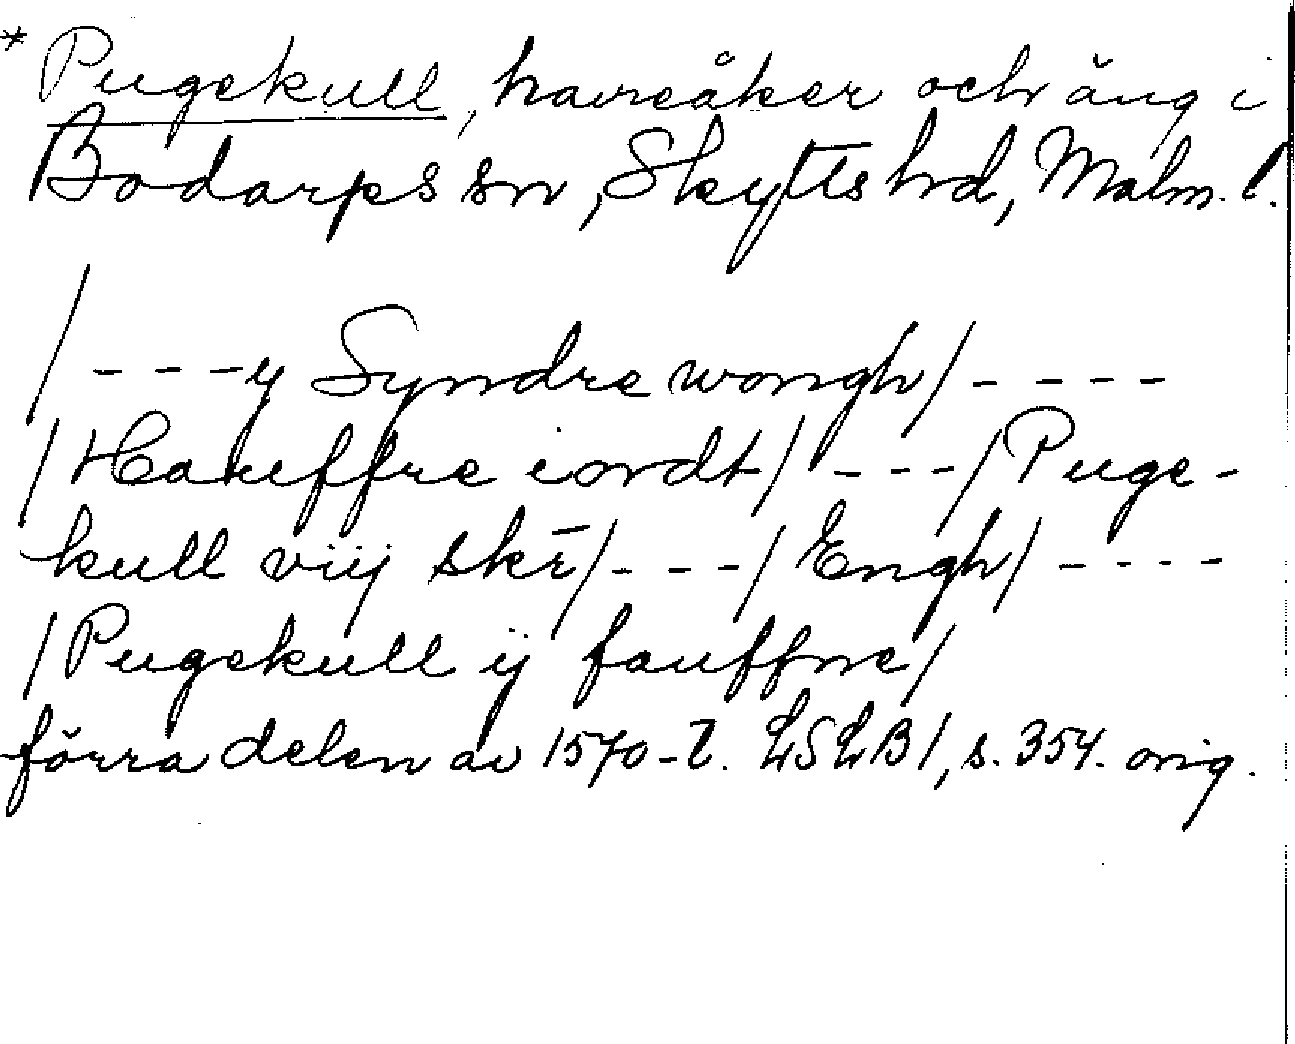 * Pugekull, havreåker och äng i
Bodarps sn, Skytts hd, Malm. l.
/ - - - y Syndre wongh / - - - -
/ Hauffre iordt / - - - / Puge-
kull viij skē / - - - / Engh / - - - -
/ Pugekull ij fauffne /
förra delen av 1570-t. LSLB 1, s. 354. orig.